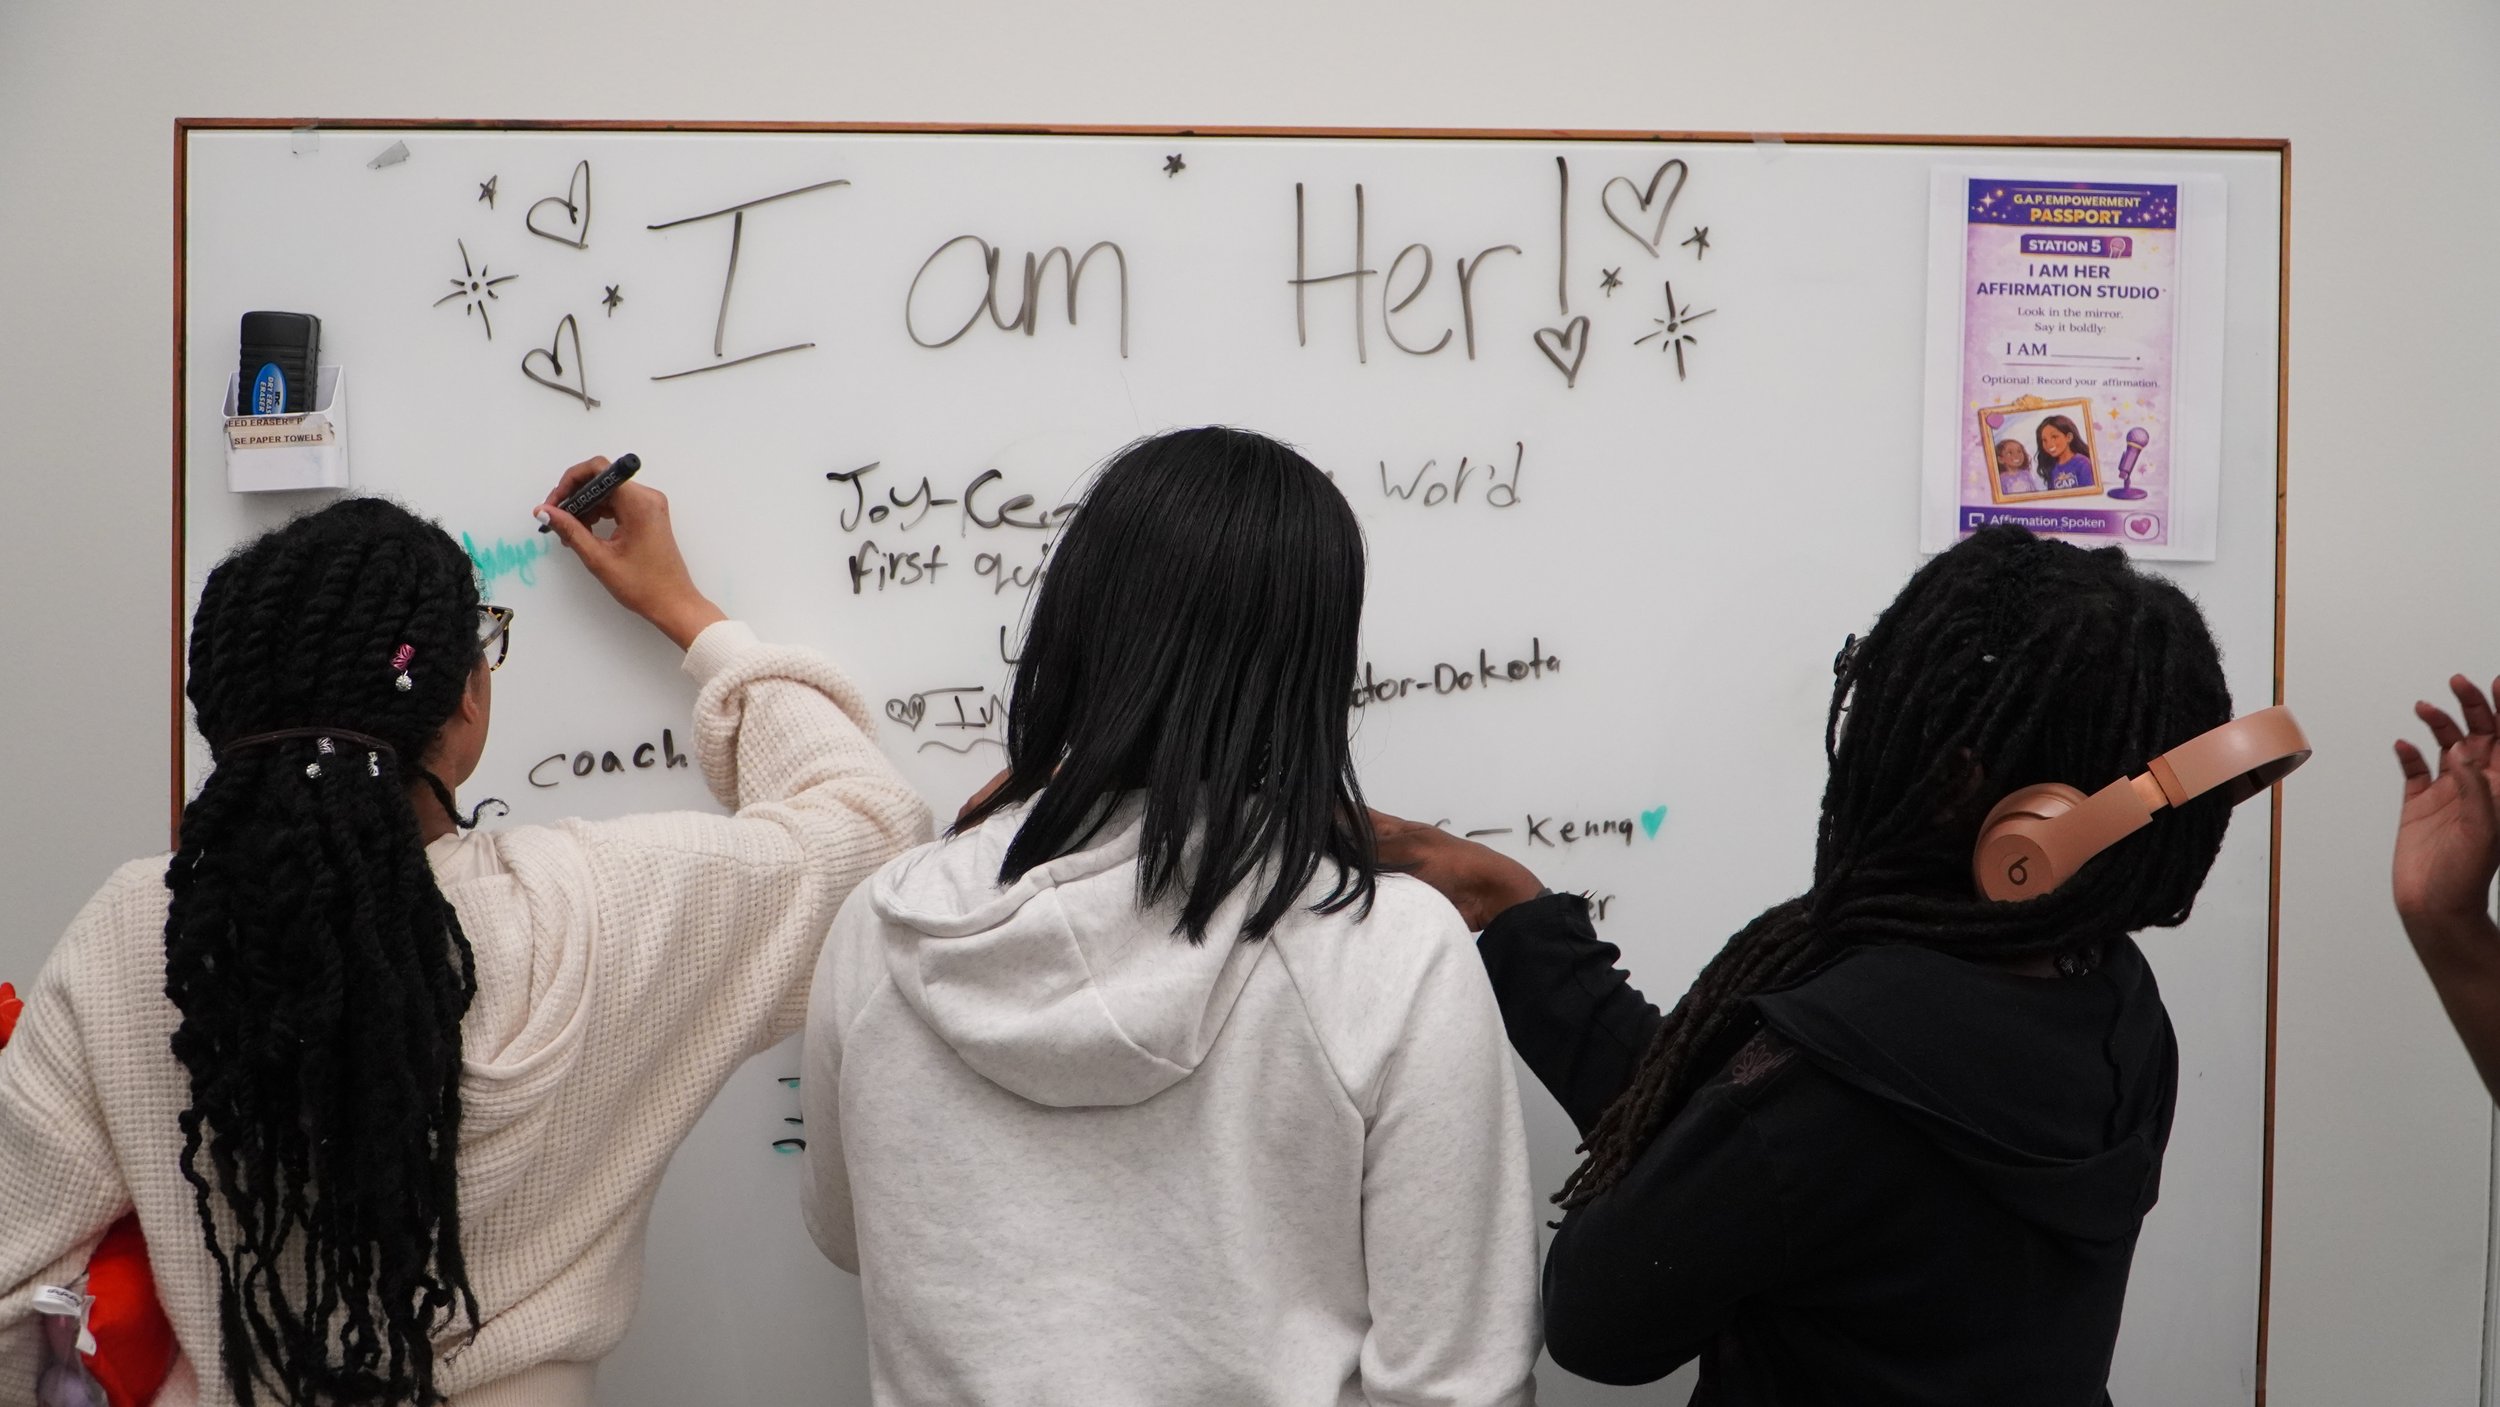 I am Her!
G.A.P. EMPOWERMENT
PASSPORT
STATION 5
I AM HER
AFFIRMATION STUDIO
Look in the mirror.
Say it boldly:
I AM ________.
Optional: Record your affirmation.
GAP
Affirmation Spoken
DRY ERASE
ERASER
EED ERASER- P
SE PAPER TOWELS
Joy-Ce Wor'd
first qu
ator-Dakota
coach
Kenna
er